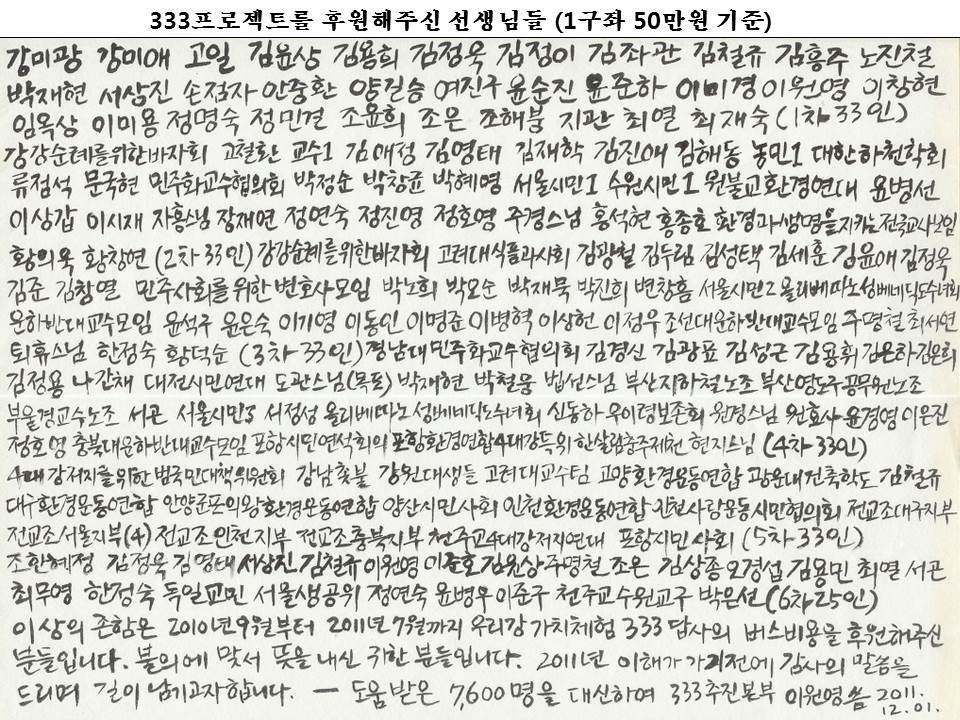 333프로젝트를 후원해주신 선생님들 (1구좌 50만원 기준)
강미광 강미애 고일 김윤상 김용희 김정욱 김정이 김좌관 김철규 김흥주 노진철
박재현 서상진 손점자 안중환 양길승 여진구 윤순진 윤준하 이미경 이원영 이창현
임옥상 이미용 정명숙 정민걸 조윤희 조은 조해붕 지관 최열 최재숙 (1차 33인)
강강순례를위한바자회 고철환 교수1 김애정 김영태 김재학 김진애 김해동 농민1 대한하천학회
류점석 문국현 민주화교수협의회 박정순 박창균 박혜영 서울시민1 수원시민1 원불교환경연대 윤병선
이상갑 이시재 자흥스님 장재연 정연숙 정진영 정호영 주경스님 홍석현 홍종호 환경과생명을지키는전국교사모임
황의욱 황창연 (2차 33인) 강강순례를위한바자회 고려대식품과사회 김광철 김두림 김성택 김세훈 김윤애 김정욱
김준 김창열 민주사회를위한변호사모임 박노희 박모순 박재묵 박진희 변창흠 서울시민2 올리베따노성베네딕도수녀회
운하반대교수모임 윤석구 윤은숙 이기영 이동인 이명준 이병혁 이상헌 이정우 조선대운하반대교수모임 주명철 최서연
퇴휴스님 한정숙 황덕순 (3차 33인) 경남대민주화교수협의회 김경신 김광표 김성근 김용휘 김은하 김은희
김정용 나간채 대전시민연대 도관스님(목포) 박재현 박철웅 법선스님 부산지하철노조 부산영도구공무원노조
부울경교수노조 서곤 서울시민3 서정성 올리베따노성베네딕도수녀회 신동하 우이령보존회 원경스님 원효사 윤경영 이은진
정호영 충북대운하반대교수모임 포항시민연석회의 포항환경연합4대강특위 한살림충주제천 현지스님 (4차 33인)
4대강저지를위한범국민대책위원회 강남촛불 강원대생들 고려대교수님 고양환경운동연합 광운대건축학도 김철규
대구환경운동연합 안양군포의왕환경운동연합 양산시민사회 인천환경운동연합 인천사랑운동시민협의회 전교조대구지부
전교조서울지부(4) 전교조인천지부 전교조충북지부 천주교4대강저지연대 포항시민사회 (5차 33인)
조한혜정 김정욱 김영태 서상진 김철규 이원영 이준호 김원상 주명철 조은 김상종 오경섭 김용민 최열 서곤
최무영 한정숙 독일교민 서울생공위 정연숙 윤병우 이준구 천주교수원교구 박은선 (6차 25인)
이상의 존함은 2010년9월부터 2011년7월까지 우리강 가치체험 333 답사의 버스비용을 후원해주신
분들입니다. 불의에 맞서 뜻을 내신 귀한 분들입니다. 2011년 이해가 가기전에 감사의 말씀을
드리며 길이 남기고자합니다. — 도움받은 7,600명을 대신하여 333추진본부 이원영 씀 2011.
12.01.